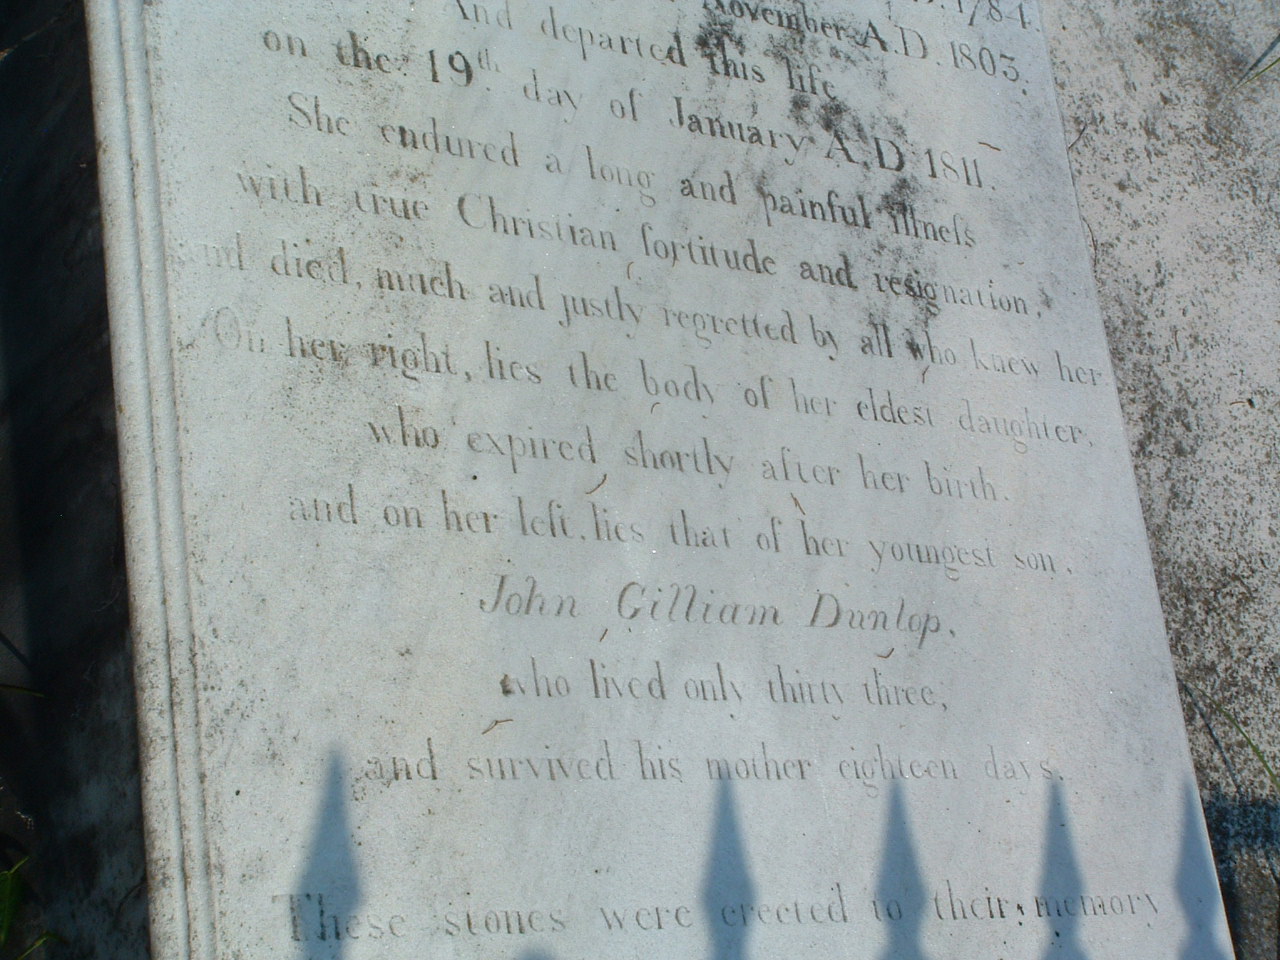 A.D. 1784.
November A.D. 1803.
And departed this life
on the 19th. day of January A.D 1811.
She endured a long and painful illneſs
with true Christian fortitude and resignation,
and died, much and justly regretted by all who knew her
On her right, lies the body of her eldest daughter,
who expired shortly after her birth.
and on her left, lies that of her youngest son,
John Gilliam Dunlop,
who lived only thirty three,
and survived his mother eighteen days.
These stones were erected to their memory